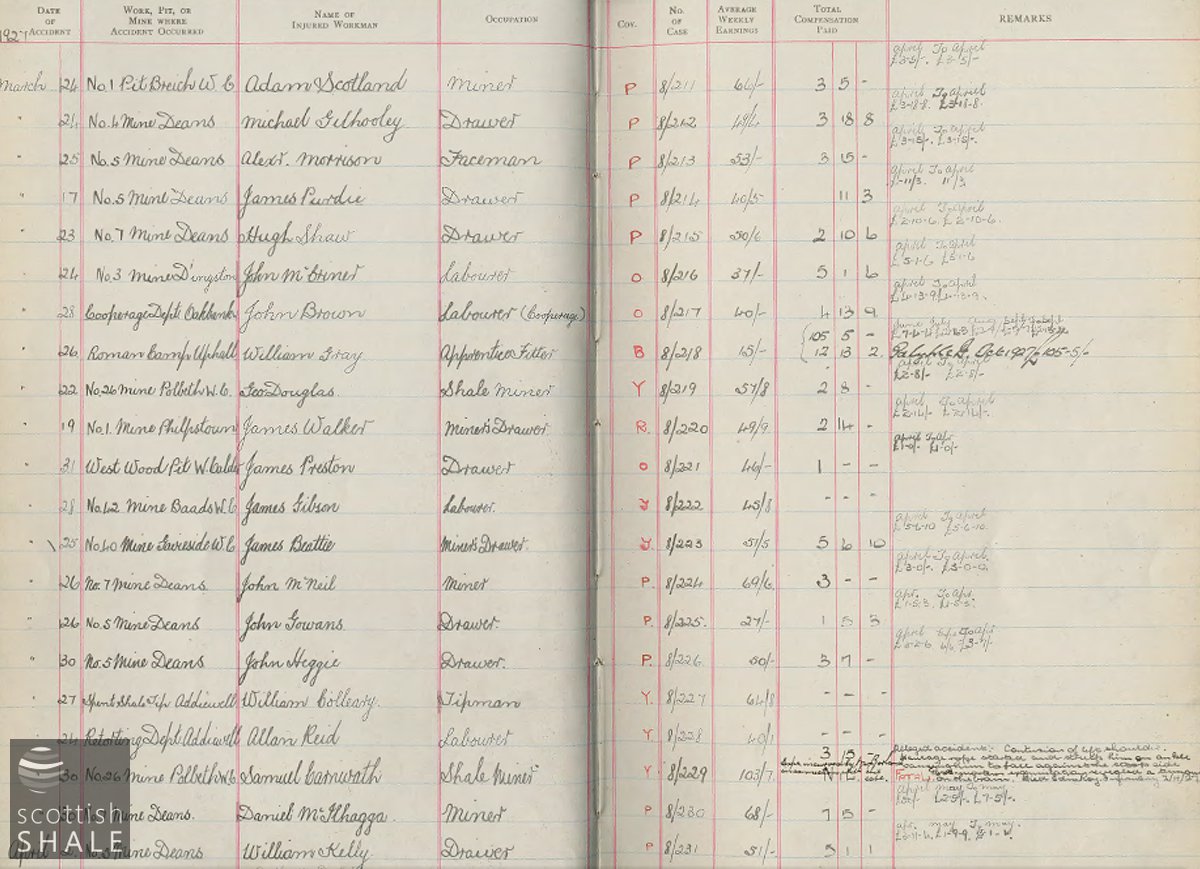 DATE OF ACCIDENT WORK, PIT, OR MINE WHERE ACCIDENT OCCURRED NAME OF INJURED WORKMAN OCCUPATION Coy. No. OF CASE AVERAGE WEEKLY EARNINGS TOTAL COMPENSATION PAID REMARKS
1927
april To April
March 24 No. 1 Pit Breich W.C Adam Scotland Miner P 8/211 3 5 -
april To april
£3-18-8. £3-18-8.
" 24 No. 4 Mine Deans Michael Gilhooley Drawer P 8/212 49/4 3 18 8
april To april
£3-15/-. £3-15/-.
" 25 No. 5 Mine Deans Alexr. Morrison Faceman P 8/213 53/- 3 15 -
april To April
11/3. 11/3.
" 17 No. 5 Mine Deans James Purdie Drawer P 8/214 40/5 11 3
april To april
£2-10-6. £2-10-6.
" 23 No. 7 Mine Deans Hugh Shaw Drawer P 8/215 50/6 2 10 6
april To april
£5-1-6 £5-1-6
24 No. 3 Mine D'ingston John Labourer O 8/216 37/- 5 1 6
april To april
£4-13-9 £4-13-9.
" 28 Cooperage Dept. Oakbank John Brown Labourer (Cooperage) O 8/217 40/- 4 13 9
105 5 -
" 26 Roman Camp Uphall William Gray Apprentice Fitter B 8/218 15/- 12 13 2. Oct. 1927 105-5/-
april To april
£2-8/- £2-8/-
" 22 No. 26 Mine Polbeth W.C. Geo. Douglas Shale Miner Y 8/219 57/8 2 8 -
april To april
£2-14/- £2-14/-.
" 19 No. 1. Mine Philpstown James Walker Miner's Drawer. R. 8/220 49/9 2 14 -
april To apr.
£1-0/- £1-0/-
" 31 West Wood Pit W. Calder James Preston Drawer O 8/221 46/- 1 - -
" 28 No. 42 Mine Baads W.C James Gibson Labourer. Y 8/222 45/8 - - -
april To april
£5-6-10 £5-6-10.
" 25 No. 40 Mine W.C James Beattie Miner's Drawer. Y 8/223 51/5 5 6 10
april To april.
£3-0/-. £3-0-0.
" 26 No. 7 Mine Deans John McNeil Miner P. 8/224 69/6 3 - -
apr. To apr.
" 26 No. 5 Mine Deans John Gowans Drawer. P. 8/225. 27/- 1 5 3
april To apr
" 30 No. 5 Mine Deans John Heggie Drawer. P. 8/226 50/- 3 7 -
" 27 Spent Shale Tip Addiewell William Colleary. Tipman Y. 8/227 64/8 - - -
24 Retorting Dept. Addiewell Allan Reid Labourer Y. 8/228 40/1 - - -
3 15 - Alleged accident: Contusion of left shoulder.
30 No. 26 Mine Polbeth W.C Samuel Carnwath Shale Miner Y 8/229 103/7
april May To may
£2-5/-. £7-5/-.
30 Mine Deans. Daniel McIlhagga. Miner P 8/230 68/- 7 5 -
apr. may To may.
April Mine Deans William Kelly Drawer P 8/231 51/- 5 1 1
Scottish
SHALE